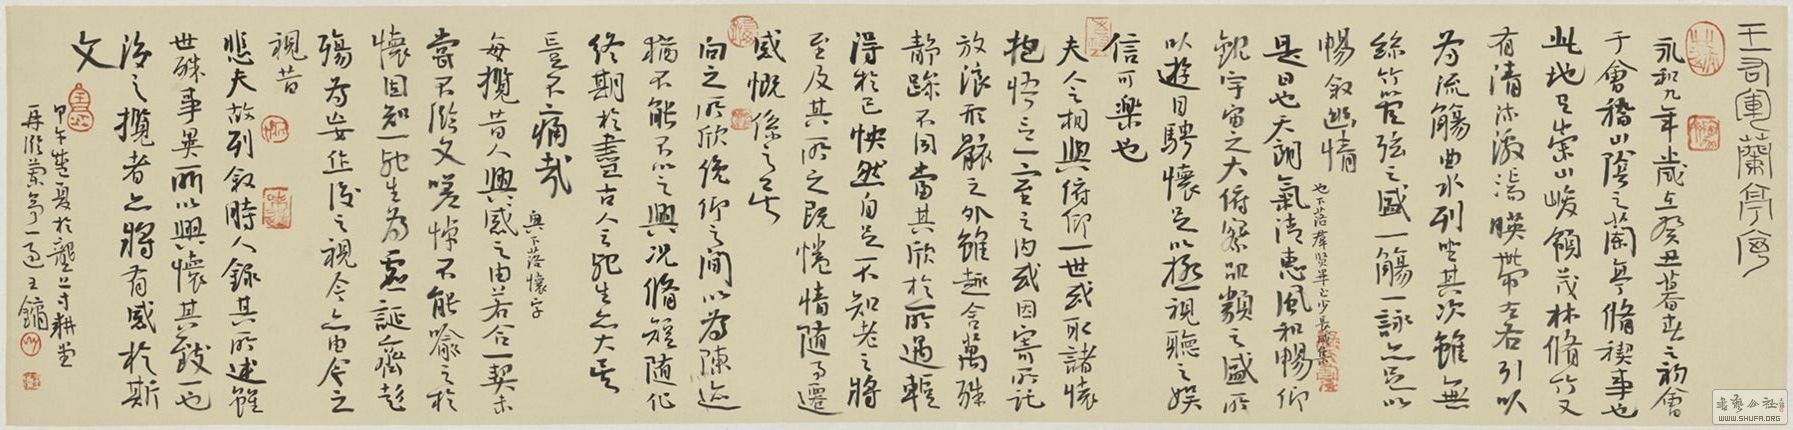 王右軍蘭亭序
永和九年歲在癸丑暮春之初會
于會稽山陰之蘭亭脩稧事也
此地有崇山峻領茂林脩竹又
有清流激湍暎帶左右引以
為流觴曲水列坐其次雖無
絲竹管弦之盛一觴一詠亦足以
暢敘幽情
也下落群賢畢至少長咸集
是日也天朗氣清惠風和暢仰
觀宇宙之大俯察品類之盛所
以遊目騁懷足以極視聽之娛
信可樂也
夫人之相與俯仰一世或取諸懷
抱悟言一室之內或因寄所託
放浪形骸之外雖趣舍萬殊
靜躁不同當其欣於所遇暫
得於己怏然自足不知老之將
至及其所之既惓情隨事遷
感慨係之矣
向之所欣俛仰之間以為陳迹
猶不能不以之興況脩短隨化
終期於盡古人云死生亦大矣
豈不痛哉
興下落懷字
每攬昔人興感之由若合一契未
嘗不臨文嗟悼不能喻之於
懷固知一死生為虛誕齊彭
殤為妄作後之視今亦由今之
視昔
悲夫故列敘時人錄其所述雖
世殊事異所以興懷其致一也
後之攬者亦將有感於斯
文
甲午盛夏於壟上寸耕堂
再臨蘭亭一過王鏞
書藝公社
WWW.SHUFA.ORG